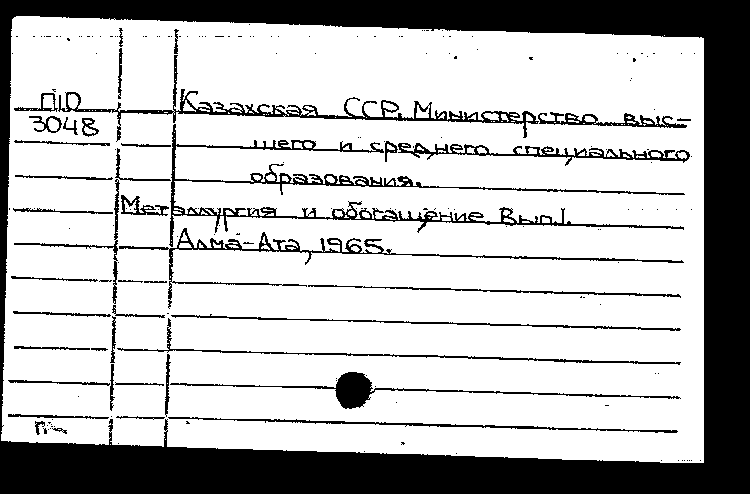 П10
3048
Казахская ССР. Министерство выс-
шего и среднего специального
образования.
Металлургия и обогащение. Вып.1.
Алма-Ата, 1965.